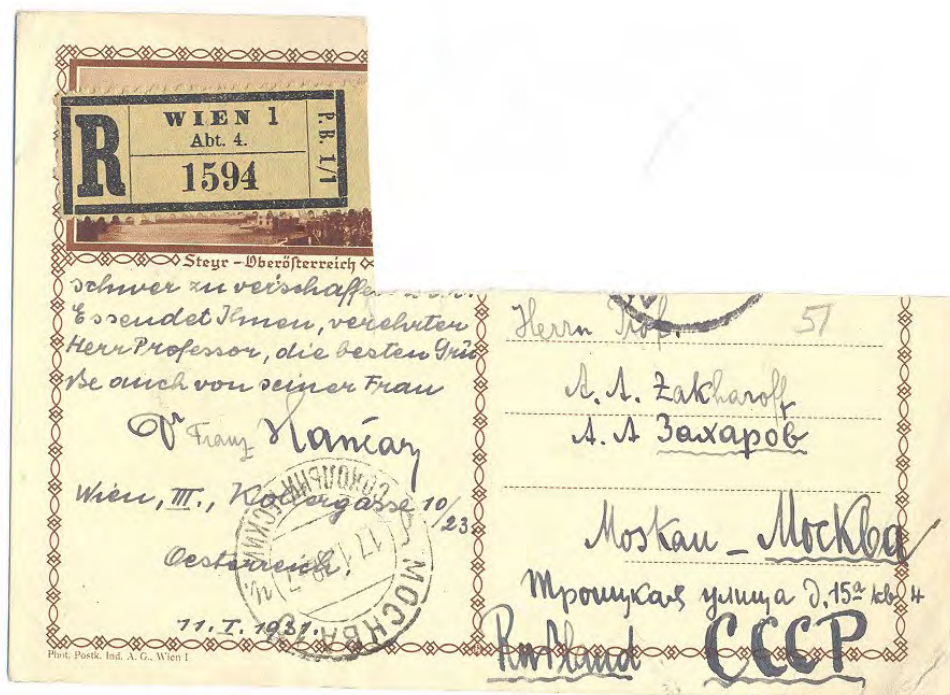 WIEN 1
Abt. 4.
1594
R
P. B. 1/1
Steyr – Oberösterreich
schwer zu verschaffen
Es sendet Ihnen, verehrter
Herr Professor, die besten Grü
ße auch von seiner Frau
Dr Franz Hančar
Wien, III., 10/23
Oesterreich.
11. I. 1931.
Phot. Postk. Ind. A. G., Wien I
Herrn Prof. 51
A. A. Zakharoff
А. А Захаров
Moskau – Москва
Троицкая улица д. 15а кв 4
Rußland СССР
МОСКВА
17.1